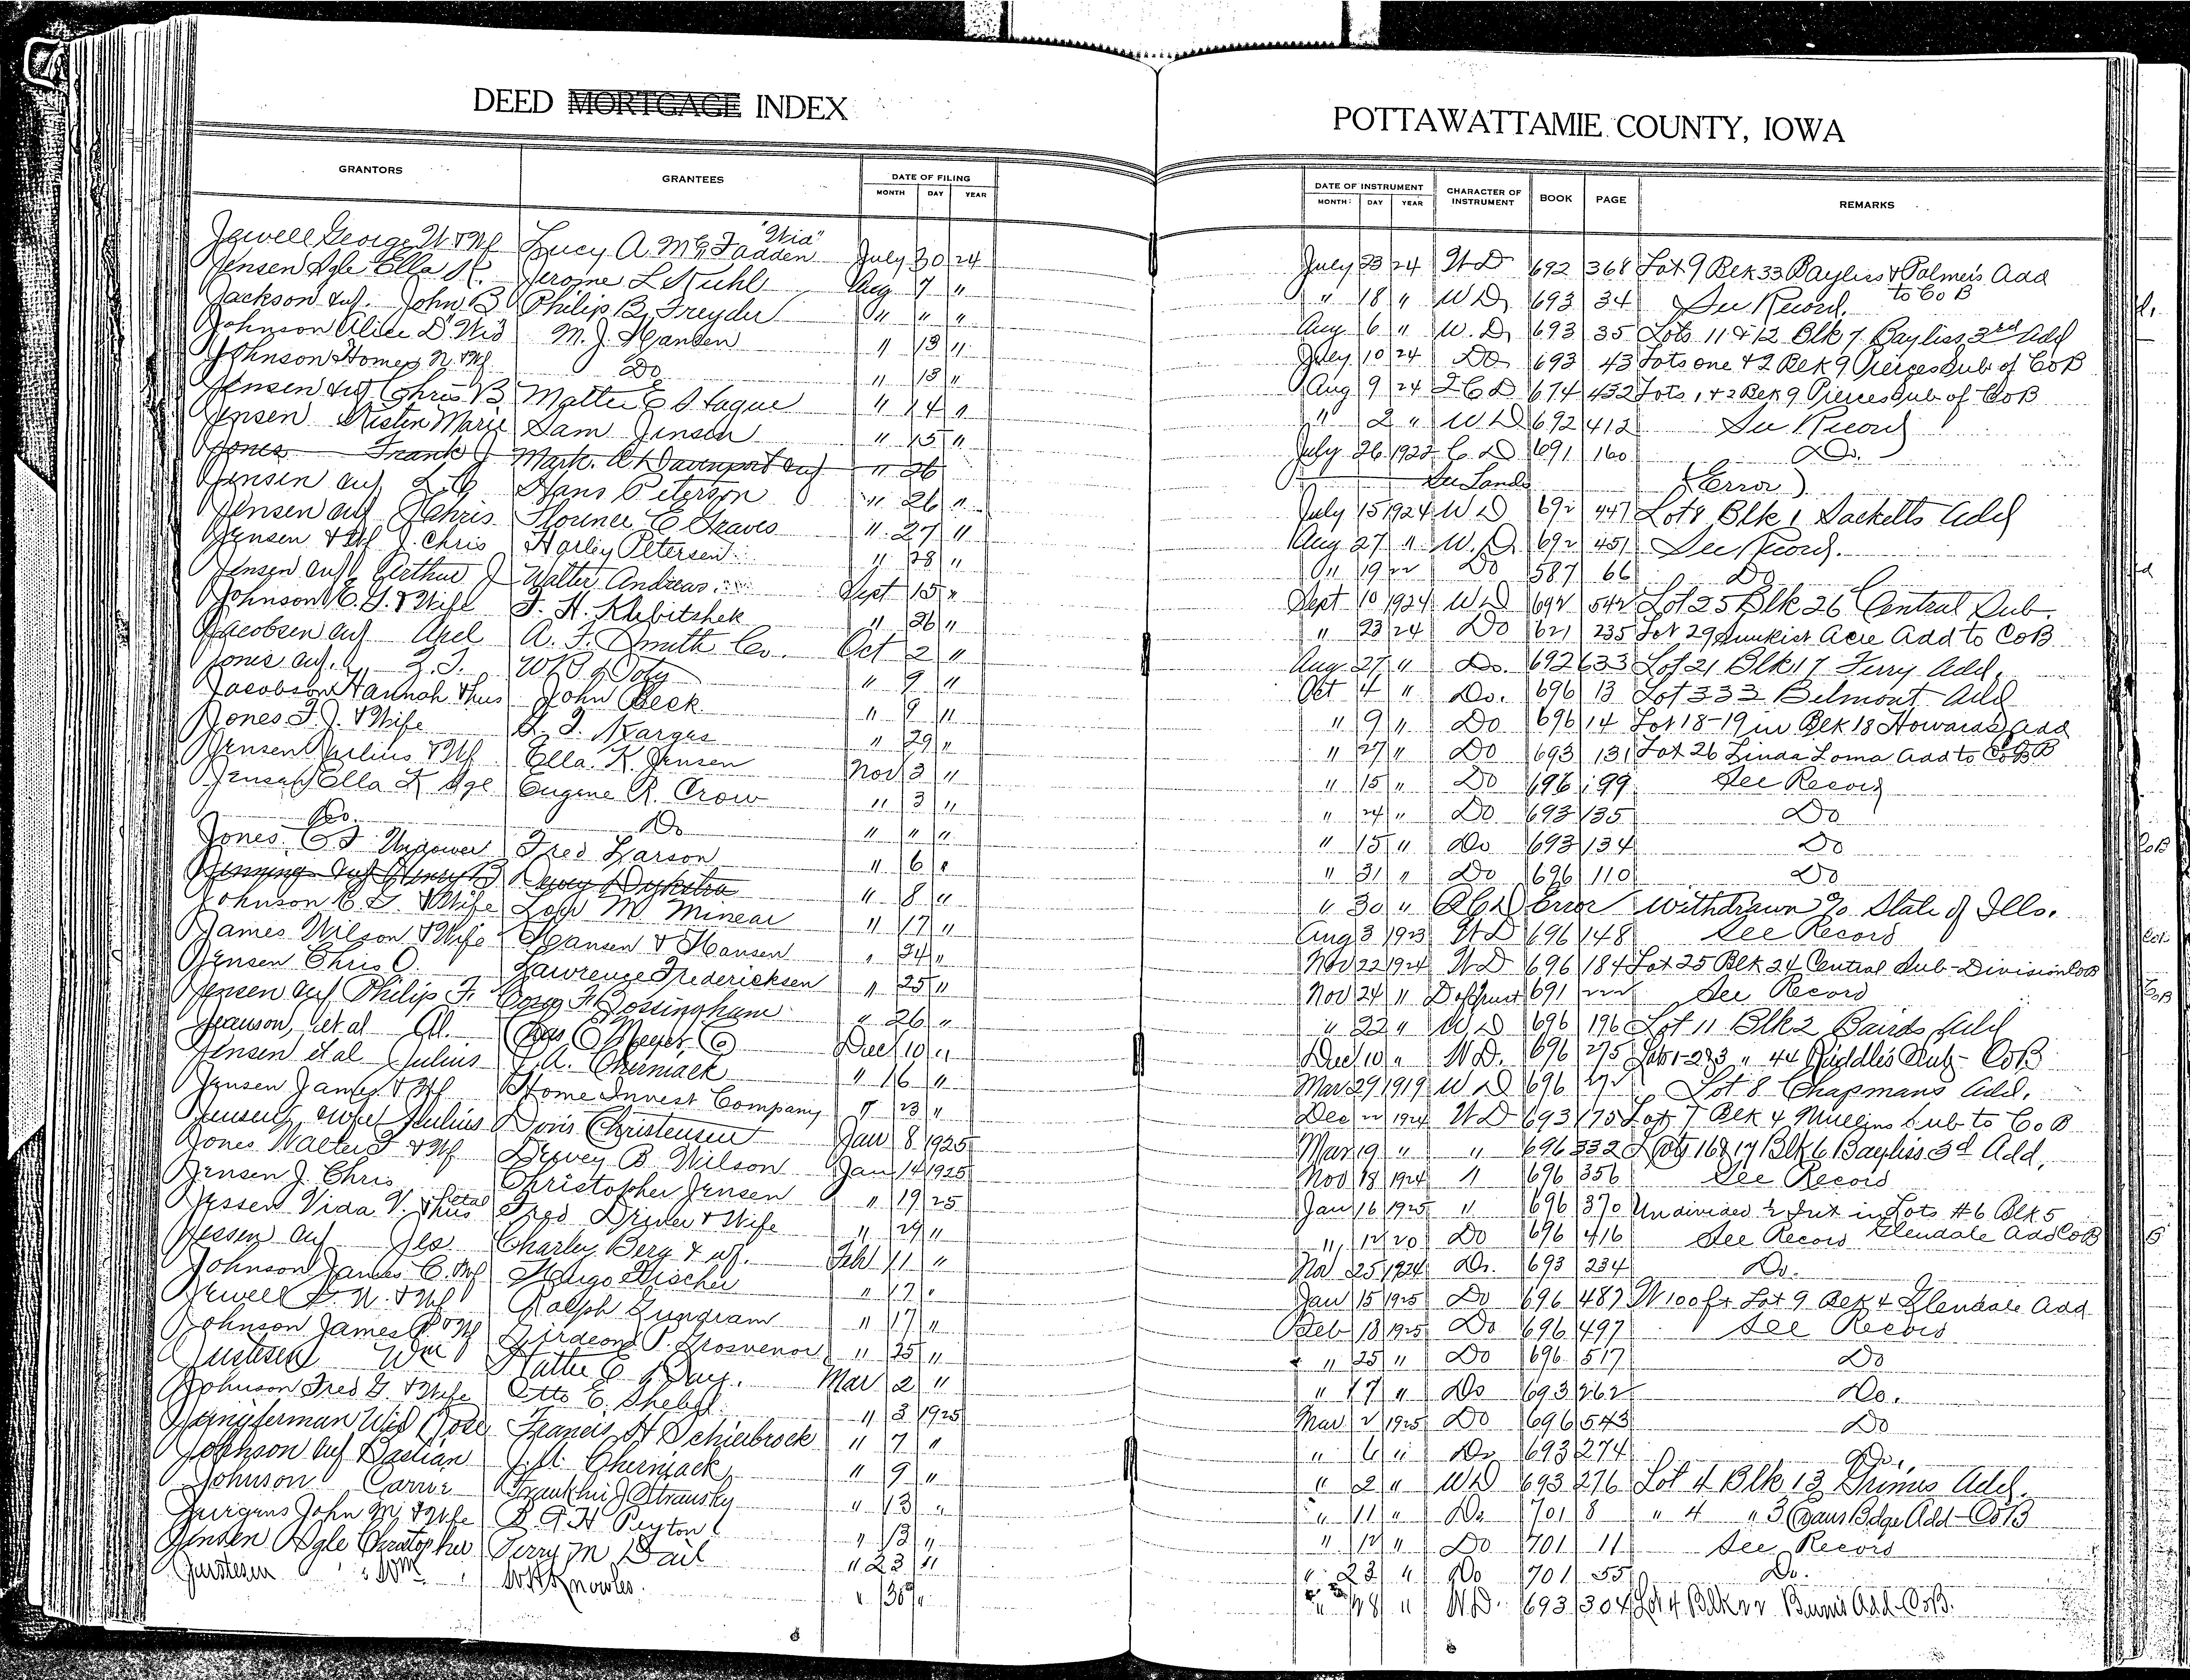 DEED MORTGAGE INDEX
POTTAWATTAMIE COUNTY, IOWA
GRANTORS GRANTEES DATE OF FILING MONTH DAY YEAR DATE OF INSTRUMENT MONTH DAY YEAR CHARACTER OF INSTRUMENT BOOK PAGE REMARKS
Jewell George W & Wf Lucy A McFadden "Wid" July 30 24 July 23 24 WD 692 368 Lot 9 Blk 33 Bayliss & Palmers Add to Co B
Jensen Sgle Ella K. Jerome L Kuhl Aug 7 " " 18 " WD 693 34 See Record.
Jackson & wf. John B Philip B. Freyder " " " Aug 6 " W.D. 693 35 Lots 11 & 12 Blk 7 Bayliss 3rd Add
Johnson Alice D. Wid M. J. Hansen " 13 " July 10 24 Do 693 43 Lots one & 2 Blk 9 Pierces Sub of CoB
Johnson Homer N. & Wf. Do " 13 " Aug 9 24 QCD 674 432 Lots 1 & 2 Blk 9 Pierces Sub of CoB
Jensen & wf Chris B Mattie E Hague " 14 " " 2 " WD 692 412 See Record
Jensen Kisten Marie Sam Jensen " 15 " July 26 1922 C.D 691 160 Do.
Jones Frank J Mark. A. Davenport " 26 See Lands (Error)
Jensen & wf L.C Hans Peterson " 26 " July 15 1924 WD 692 447 Lot 8 Blk 1 Sacketts Add
Jensen & wf Chris Florence E Graves " 27 " Aug 27 " W.D. 692 451 See Record.
Jensen & Wf J. Chris Harley Petersen " 28 " " 19 22 Do 587 66 Do
Jensen & wf Arthur J Walter Andreas Sept 15 " Sept 10 1924 WD 692 542 Lot 25 Blk 26 Central Sub.
Johnson C. G. & Wife F. H. Klebitshek " 26 " " 23 24 Do 621 235 Lot 29 Sunkist Acre Add to CoB
Jacobsen & wf Axel A. F. Smith Co. Oct 2 " Aug 27 " Do. 692 633 Lot 21 Blk 17 Ferry Add.
Jones & wf. F.J. " 9 " Oct 4 " Do. 696 13 Lot 333 Belmont Add
Jacobson Hannah & hus John Beck " 9 " " 9 " Do 696 14 Lot 18-19 in Blk 18 Howards Add
Jones F.J. & Wife Karges " 29 " " 27 " Do 693 131 Lot 26 Linda Loma Add to CoB
Jensen Julius & Wf Ella K. Jensen Nov 3 " " 15 " Do 696 99 See Record
Jensen Ella K Sgle Eugene R. Crow " 3 " " 24 " Do 693 135 Do
Do. Do " " " " 15 " Do 693 134 Do
Jones C F Widower Fred Larson " 6 " " 31 " Do 696 110 Do
Jenning & wf Henry B Dewey Dykstra " 8 " " 30 " QCD Error Withdrawn % State of Ills.
Johnson C. G. & Wife M Minear " 17 " Aug 3 1923 WD 696 148 See Record
James Wilson & Wife Hansen & Hansen " 24 " Nov 22 1924 WD 696 184 Lot 25 Blk 24 Central Sub-Division CoB
Jensen Chris O Lawrence Fredericksen " 25 " Nov 24 " D of Trust 691 222 See Record
Jensen & wf Philip F. Bossingham " 26 " " 22 " WD 696 196 Lot 11 Blk 2 Bairds Add
et al Al. Chas C Meyer Co Dec 10 " Dec 10 " W.D. 696 275 Lots 1-2&3 " 44 Riddles Sub - CoB
Jensen et al Julius J. A. Cherniack " 16 " Mar 29 1919 WD 696 Lot 8 Chapmans Add.
Jensen James & Wf Home Invest Company " 23 " Dec 22 1924 WD 693 175 Lot 7 Blk 4 Mullins Sub to Co B
Jensen & wife Julius Doris Christensen Jan 8 1925 Mar 19 " " 696 332 Lots 16 & 17 Blk 6 Bayliss 3d Add.
Jones Walter F & Wf Dewey B Wilson Jan 14 1925 Nov 18 1924 " 696 356 See Record
Jensen J. Chris Christopher Jensen " 19 25 Jan 16 1925 " 696 370 Undivided ½ Int in Lots #6 Blk 5 Glendale Add CoB
Jessen Vida V. & hus et al Fred Driver & Wife " 29 " " 12 20 Do 696 416 See Record
Jessen & wf Jes Charley Berg & wf. Feb 11 " Nov 25 1924 Do. 693 234 Do.
Johnson James C. & Wf Hugo Fischer " 17 " Jan 15 1925 Do 696 487 W 100 ft Lot 9 Blk 4 Glendale Add
Jewell G. W. & Wf Ralph Gundram " 17 " Feb 18 1925 Do 696 497 See Record
Johnson James P & Wf Girdeond P. Grosvenor " 25 " " 25 " Do 696 517 Do
Justesen Wm Hattie E Day. Mar 2 " " 17 " Do 693 262 Do.
Johnson Fred G. & Wife Otto E. " 3 1925 Mar 2 1925 Do 696 543 Do
Jungferman Wid Rose Francis H Schierbrock " 7 " " 6 " Do 693 274 Do.
Johnson & wf Bastian J. A. Cherniack " 9 " " 2 " WD 693 276 Lot 4 Blk 13 Grimes Add.
Johnson Carrie Franklin J Stransky " 13 " " 11 " Do 701 8 " 4 " 3 Evans Bdge Add - CoB
Jurgens John M. & Wife Peyton " 13 " " 12 " Do 701 11 See Record
Jensen Sgle Christopher Perry M Dail " 23 " " 23 " Do 701 55 Do.
Justesen Wm W H Knowles. " 30 " " 28 " W.D. 693 304 Lot 4 Blk 22 Burns Add CoB.